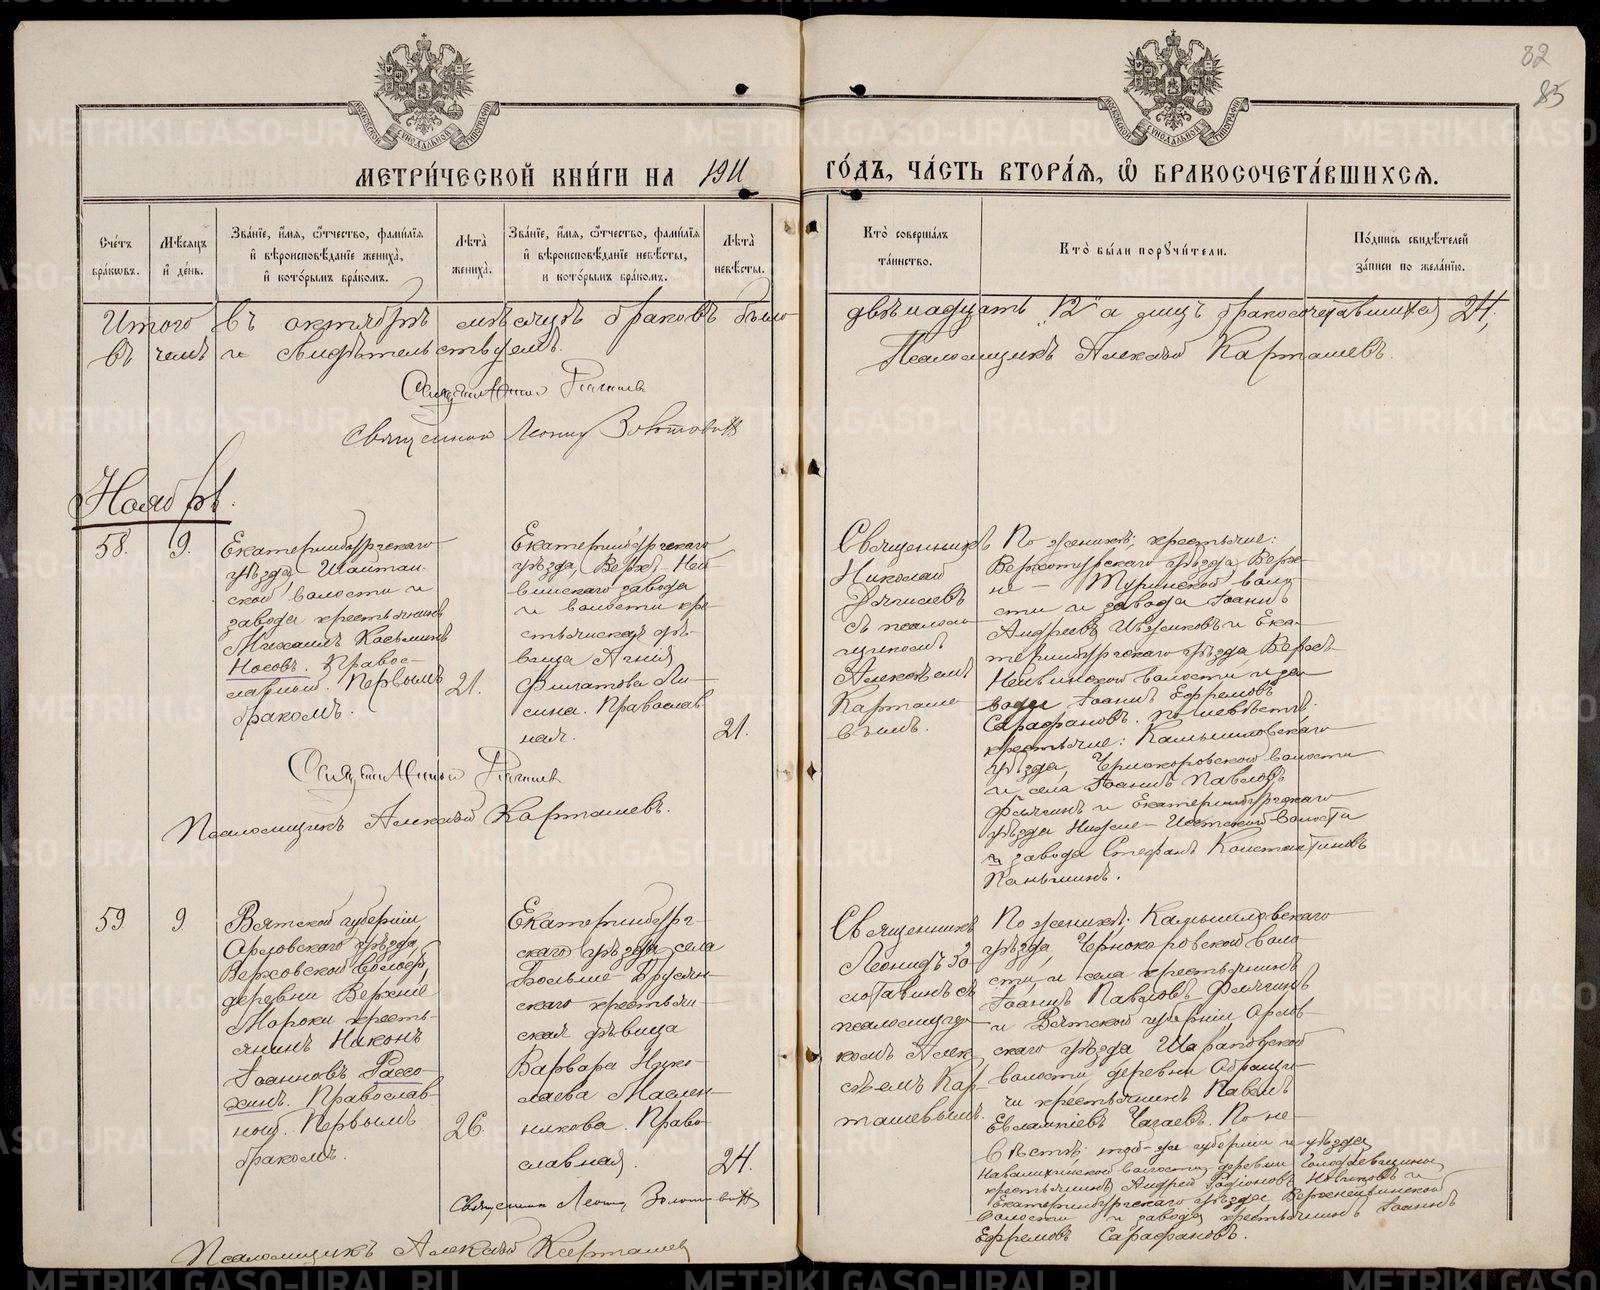 82
85
МЕТРИ́ЧЕСКОЙ КНИ́ГИ НА 1911
ГО́ДЪ, ЧА́СТЬ ВТОРА́Я, Ѡ БРАКОСОЧЕТА́ВШИХСЯ.
Сче́тъ бра́кωвъ.
Мѣ́сяцъ и҆ де́нь.
Зва́нїе, и҆́мя, ѻ҆́тчество, фами́лїя и҆ вѣроисповѣ́данїе жениха̀, и҆ кото́рымъ бра́комъ.
Лѣ́та жениха̀.
Зва́нїе, и҆́мя, ѻ҆́тчество, фами́лїя и҆ вѣроисповѣ́данїе невѣ́сты, и҆ кото́рымъ бра́комъ.
Лѣ́та невѣ́сты.
Кто̀ соверша́лъ та́инство.
Кто̀ бы́ли порꙋчи́тели.
По́дпись свидѣ́телей за́писи по жела́нїю.
Итого въ октябрѣ мѣсяцѣ браковъ было
двѣнадцать "12" а лицъ бракосочетавшихся 24,
въ чемъ и свидѣтельствуемъ.
Псаломщикъ Алексѣй Карташевъ.
Священникъ
Священникъ Леонидъ Золотавинъ
Ноябрь.
58.
9.
Екатеринбургскаго
уѣзда, Шайтан-
ской волости и
завода крестьянинъ
Михаилъ Косьминъ
Носовъ. Правос-
лавный. Первымъ
бракомъ.
21.
Екатеринбургскаго
уѣзда, Верхъ-Ней-
винскаго завода
и волости кре-
стьянская дѣ-
вица Агнія
Филатова Ли-
сина. Православ
ная.
21.
Священникъ
Николай
съ псалом-
щикомъ
Алексѣемъ
Карташе-
вымъ.
По женихѣ; крестьяне:
Верхотурскаго уѣзда, Верх-
не-Туринской воло
сти и завода Іоаннъ
Андреевъ и Ека-
теринбургскаго уѣзда Верхъ-
Нейвинской волости и за-
вода Іоаннъ Ефремовъ
Сарафановъ. По невѣстѣ:
крестьяне: Камышловскаго
уѣзда, Чернокоровской волости
и села Іоаннъ Павловъ
и Екатеринбургскаго
уѣзда Нижне-Исетской волости
и завода Стефанъ Константиновъ
Паньшинъ.
Священникъ
Псаломщикъ Алексѣй Карташевъ.
59
9
Вятской губерніи,
Орловскаго уѣзда,
Верховской волости,
деревни Верхніе
Мороки кресть-
янинъ Никонъ
Іоанновъ Рассо-
хинъ. Православ-
ный. Первымъ
бракомъ.
26.
Екатеринбург-
скаго уѣзда села
Больше-Брусян-
скаго крестьян-
ская дѣвица
Варвара Нико-
лаева Маслен-
никова. Право-
славная.
24.
Священникъ
Леонидъ Зо-
лотавинъ съ
псаломщи-
комъ Алек-
сѣемъ Кар-
ташевымъ.
По женихѣ; Камышловскаго
уѣзда, Чернокоровской воло-
сти и села крестьянинъ
Іоаннъ Павловъ
и Вятской губерніи Орлов-
скаго уѣзда Шараповской
волости деревни
крестьянинъ Павелъ
Евлампіевъ Чагаевъ. По не-
вѣстѣ: той-же губерніи и уѣзда
волости деревни
крестьянинъ Андрей Родіоновъ Новиковъ и
Екатеринбургскаго уѣзда Верхнейвинской
волости и завода крестьянинъ Іоаннъ
Ефремовъ Сарафановъ.
Священникъ Леонидъ Золотавинъ
Псаломщикъ Алексѣй Карташевъ
METRIKI.GASO-URAL.RU